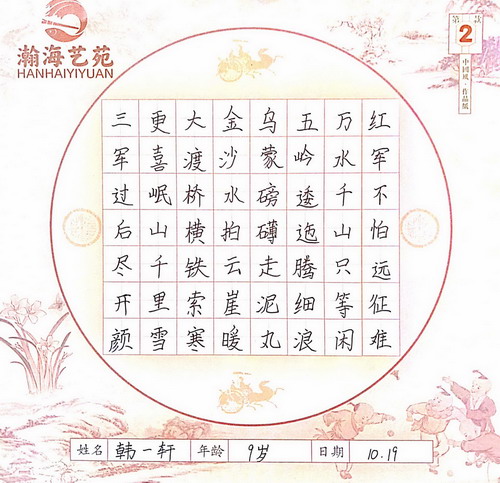 瀚海艺苑
HANHAIYIYUAN
第2款
中国风·作品纸
红军不怕远征难
万水千山只等闲
五岭逶迤腾细浪
乌蒙磅礴走泥丸
金沙水拍云崖暖
大渡桥横铁索寒
更喜岷山千里雪
三军过后尽开颜
姓名 韩一轩 年龄 9岁 日期 10.19